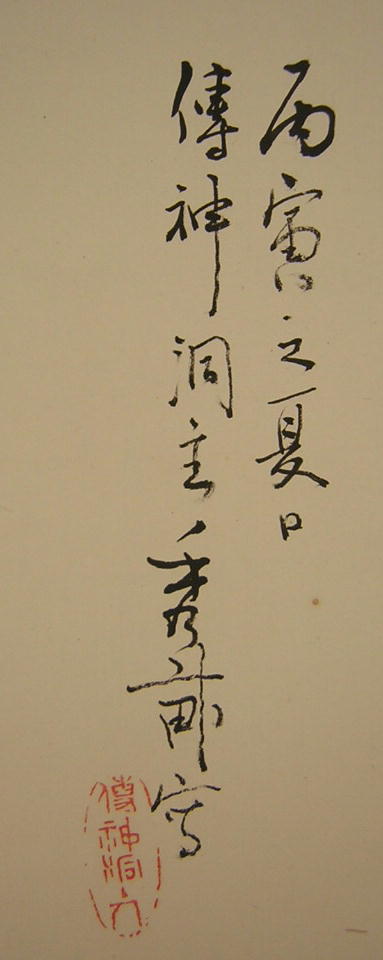 丙寅之夏日
傳神洞主秀畝寫
傳神洞